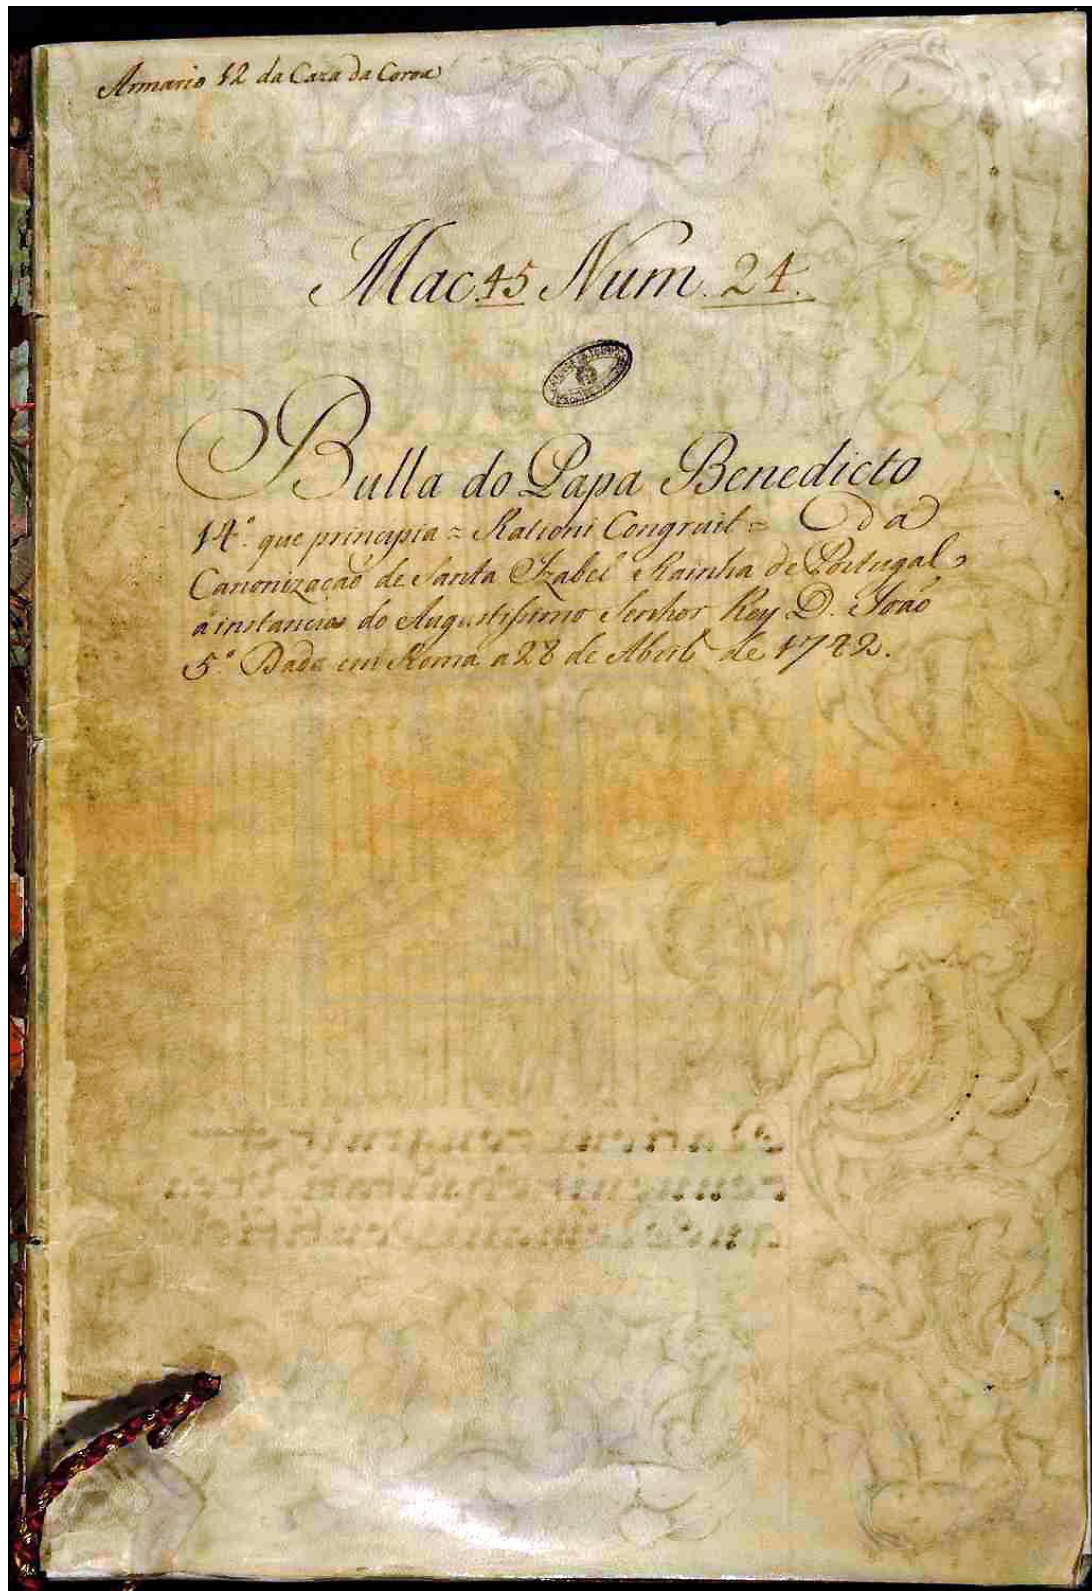 Armario 12 da Caza da Coroa
Mac. 45 Num. 24.
Bulla do Papa Benedicto
14º. que principia = Rationi Congruit = Da
Canonização de Santa Izabel Rainha de Portugal,
á instancias do Augustissimo Senhor Rey D. João
5º. Dada em Roma a 28 de Abril de 1742.